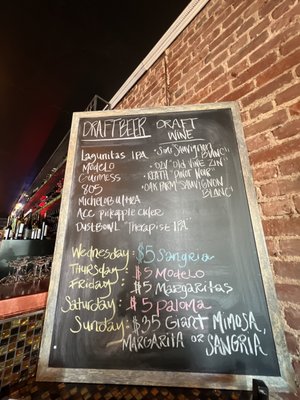 DRAFT BEER
Lagunitas IPA
Modelo
Guinness
805
Michelob Ultra
Ace pineapple cider
Dustbowl "Therapist IPA"
DRAFT
WINE
BLANC"
"OLD Vine ZIN"
"PINOT NOIR"
•OAK FARM "SAUVIGNON
BLANC"
Wednesday: $5 Sangria
Thursday: $5 Modelo
Friday: $5 Margaritas
Saturday: $5 Paloma
Sunday: $35 Giant Mimosa,
MARGARITA or
SANGRIA